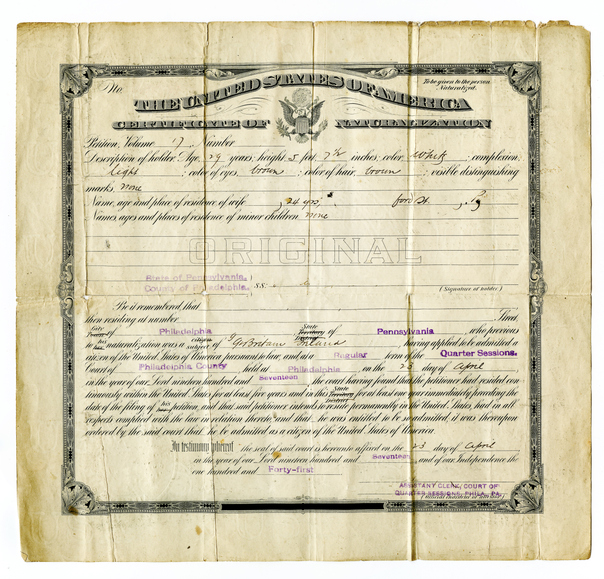 No.
To be given to the person Naturalized.
THE UNITED STATES OF AMERICA
CERTIFICATE OF NATURALIZATION
Petition, Volume 7 Number
Description of holder: Age, 29 years; height, 5 feet, 7½ inches; color, White; complexion,
light; color of eyes, brown; color of hair, brown; visible distinguishing
marks, none
Name, age and place of residence of wife, 24 yrs, ford St., Pa
Names, ages and places of residence of minor children, none
ORIGINAL
State of Pennsylvania,
County of Philadelphia, } SS:
(Signature of holder)
Be it remembered, that
then residing at number Street
City of Philadelphia State Territory of Pennsylvania, who previous
to his naturalization was a citizen subject of Gr Britain Ireland, having applied to be admitted a
citizen of the United States of America pursuant to law, and, at a Regular term of the Quarter Sessions.
Court of Philadelphia County held at Philadelphia on the 23 day of April
in the year of our Lord nineteen hundred and Seventeen, the court having found that the petitioner had resided con-
tinuously within the United States for at least five years and in this State Territory for at least one year immediately preceding the
date of the filing of his petition, and that said petitioner intends to reside permanently in the United States, had in all
respects complied with the law in relation thereto, and that he was entitled to be so admitted, it was thereupon
ordered by the said court that he be admitted as a citizen of the United States of America.
In testimony whereof the seal of said court is hereunto affixed on the 23 day of April
in the year of our Lord nineteen hundred and Seventeen and of our Independence the
one hundred and Forty-first
ASSISTANT CLERK, COURT OF
QUARTER SESSIONS, PHILA. PA.